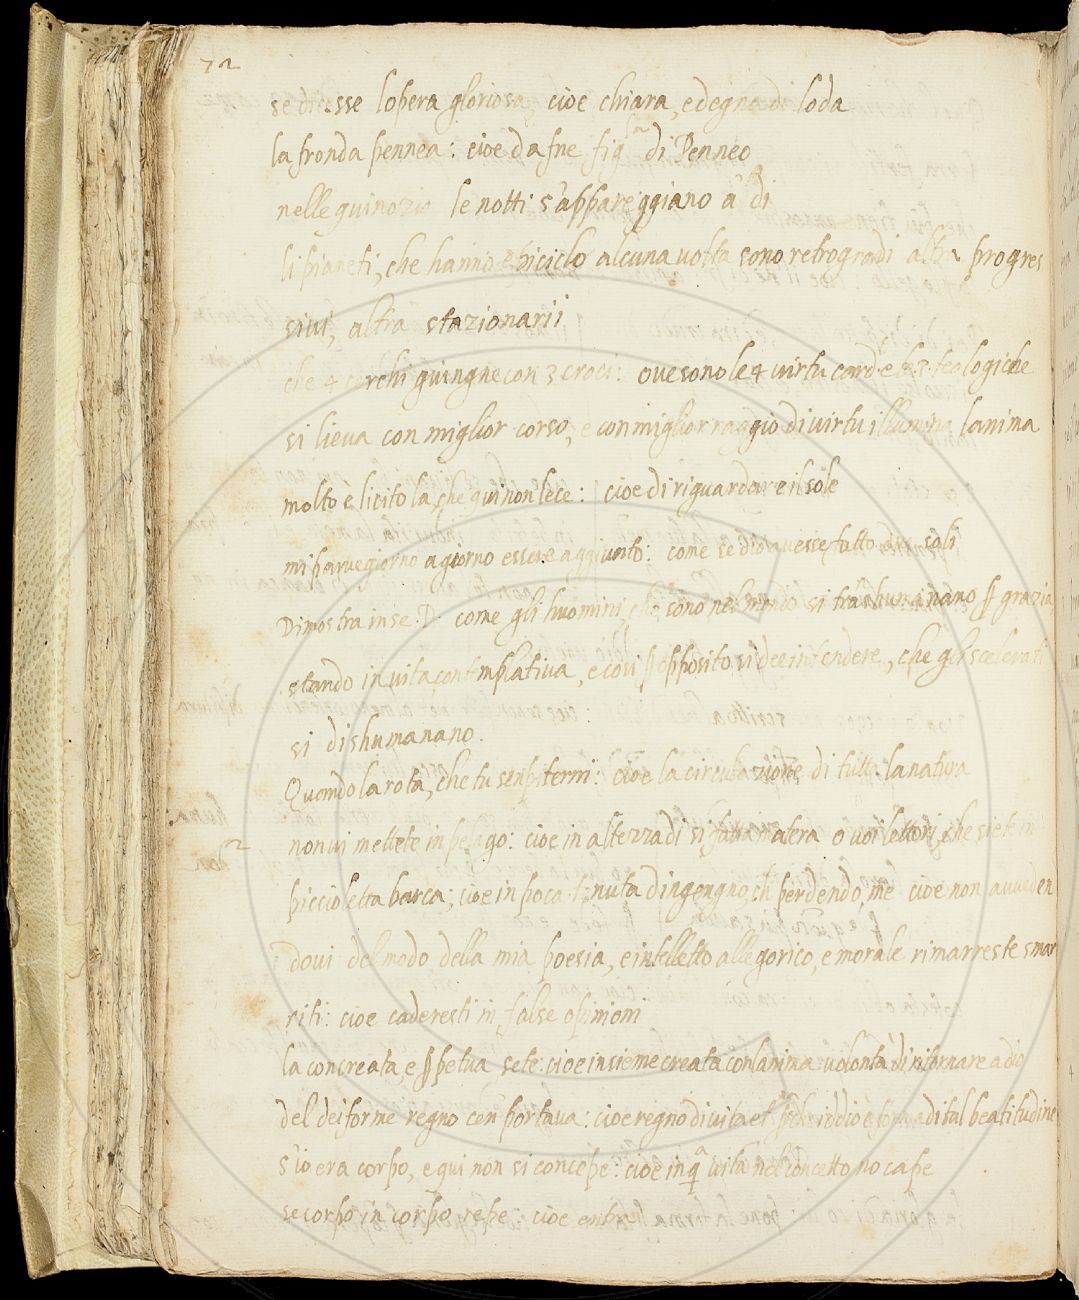 72
se dicesse lopera gloriosa, cioe chiara, e degna di loda
la fronda pennea: cioe dafne figla di Penneo
nellequinozio le notti s'appareggiano a di
li pianeti, che hanno epiciclo alcuna volta sono retrogradi altra progres
sivi, altra stazionarii
che 4 cerchi giungne con 3 croci: ove sono le 4 virtu card. e le 3. teologiche
si lieva con miglior corso, e con miglior raggio di virtu illumina lanima
molto e licito la, che qui non lece: cioe di riguardare il sole
mi parve giorno a giorno essere aggiunto: come se dio avesse fatto due soli
Dimostra in se D. come gli huomini, che sono nel mondo si trashumanano ꝑ grazia
stando in vita contemplativa, e cosi ꝑ opposito si dee intendere, che gli scelerati
si dishumanano.
Quando la rota, che tu sempiterni: cioe la circulazione di tutta la natura
non vi mettete in pelago: cioe in altezza di si fatta matera o voi lettori che siete in
piccioletta barca; cioe in poca tenuta dingengno, ch perdendo, me cioe non avveden
dovi del modo della mia poesia, e intelletto allegorico, e morale rimarreste smar
riti: cioe caderesti in false opinioni
la concreata, e ꝑpetua sete: cioe insieme creata con lanima volonta di ritornare a dio
del deiforme regno cen portava: cioe regno di vita et. ꝑche iddio e forma di tal beatitudine
s'io era corpo, e qui non si concepe: cioe in qa vita nel concetto no cape
se corpo in corpo repe: cioe entra